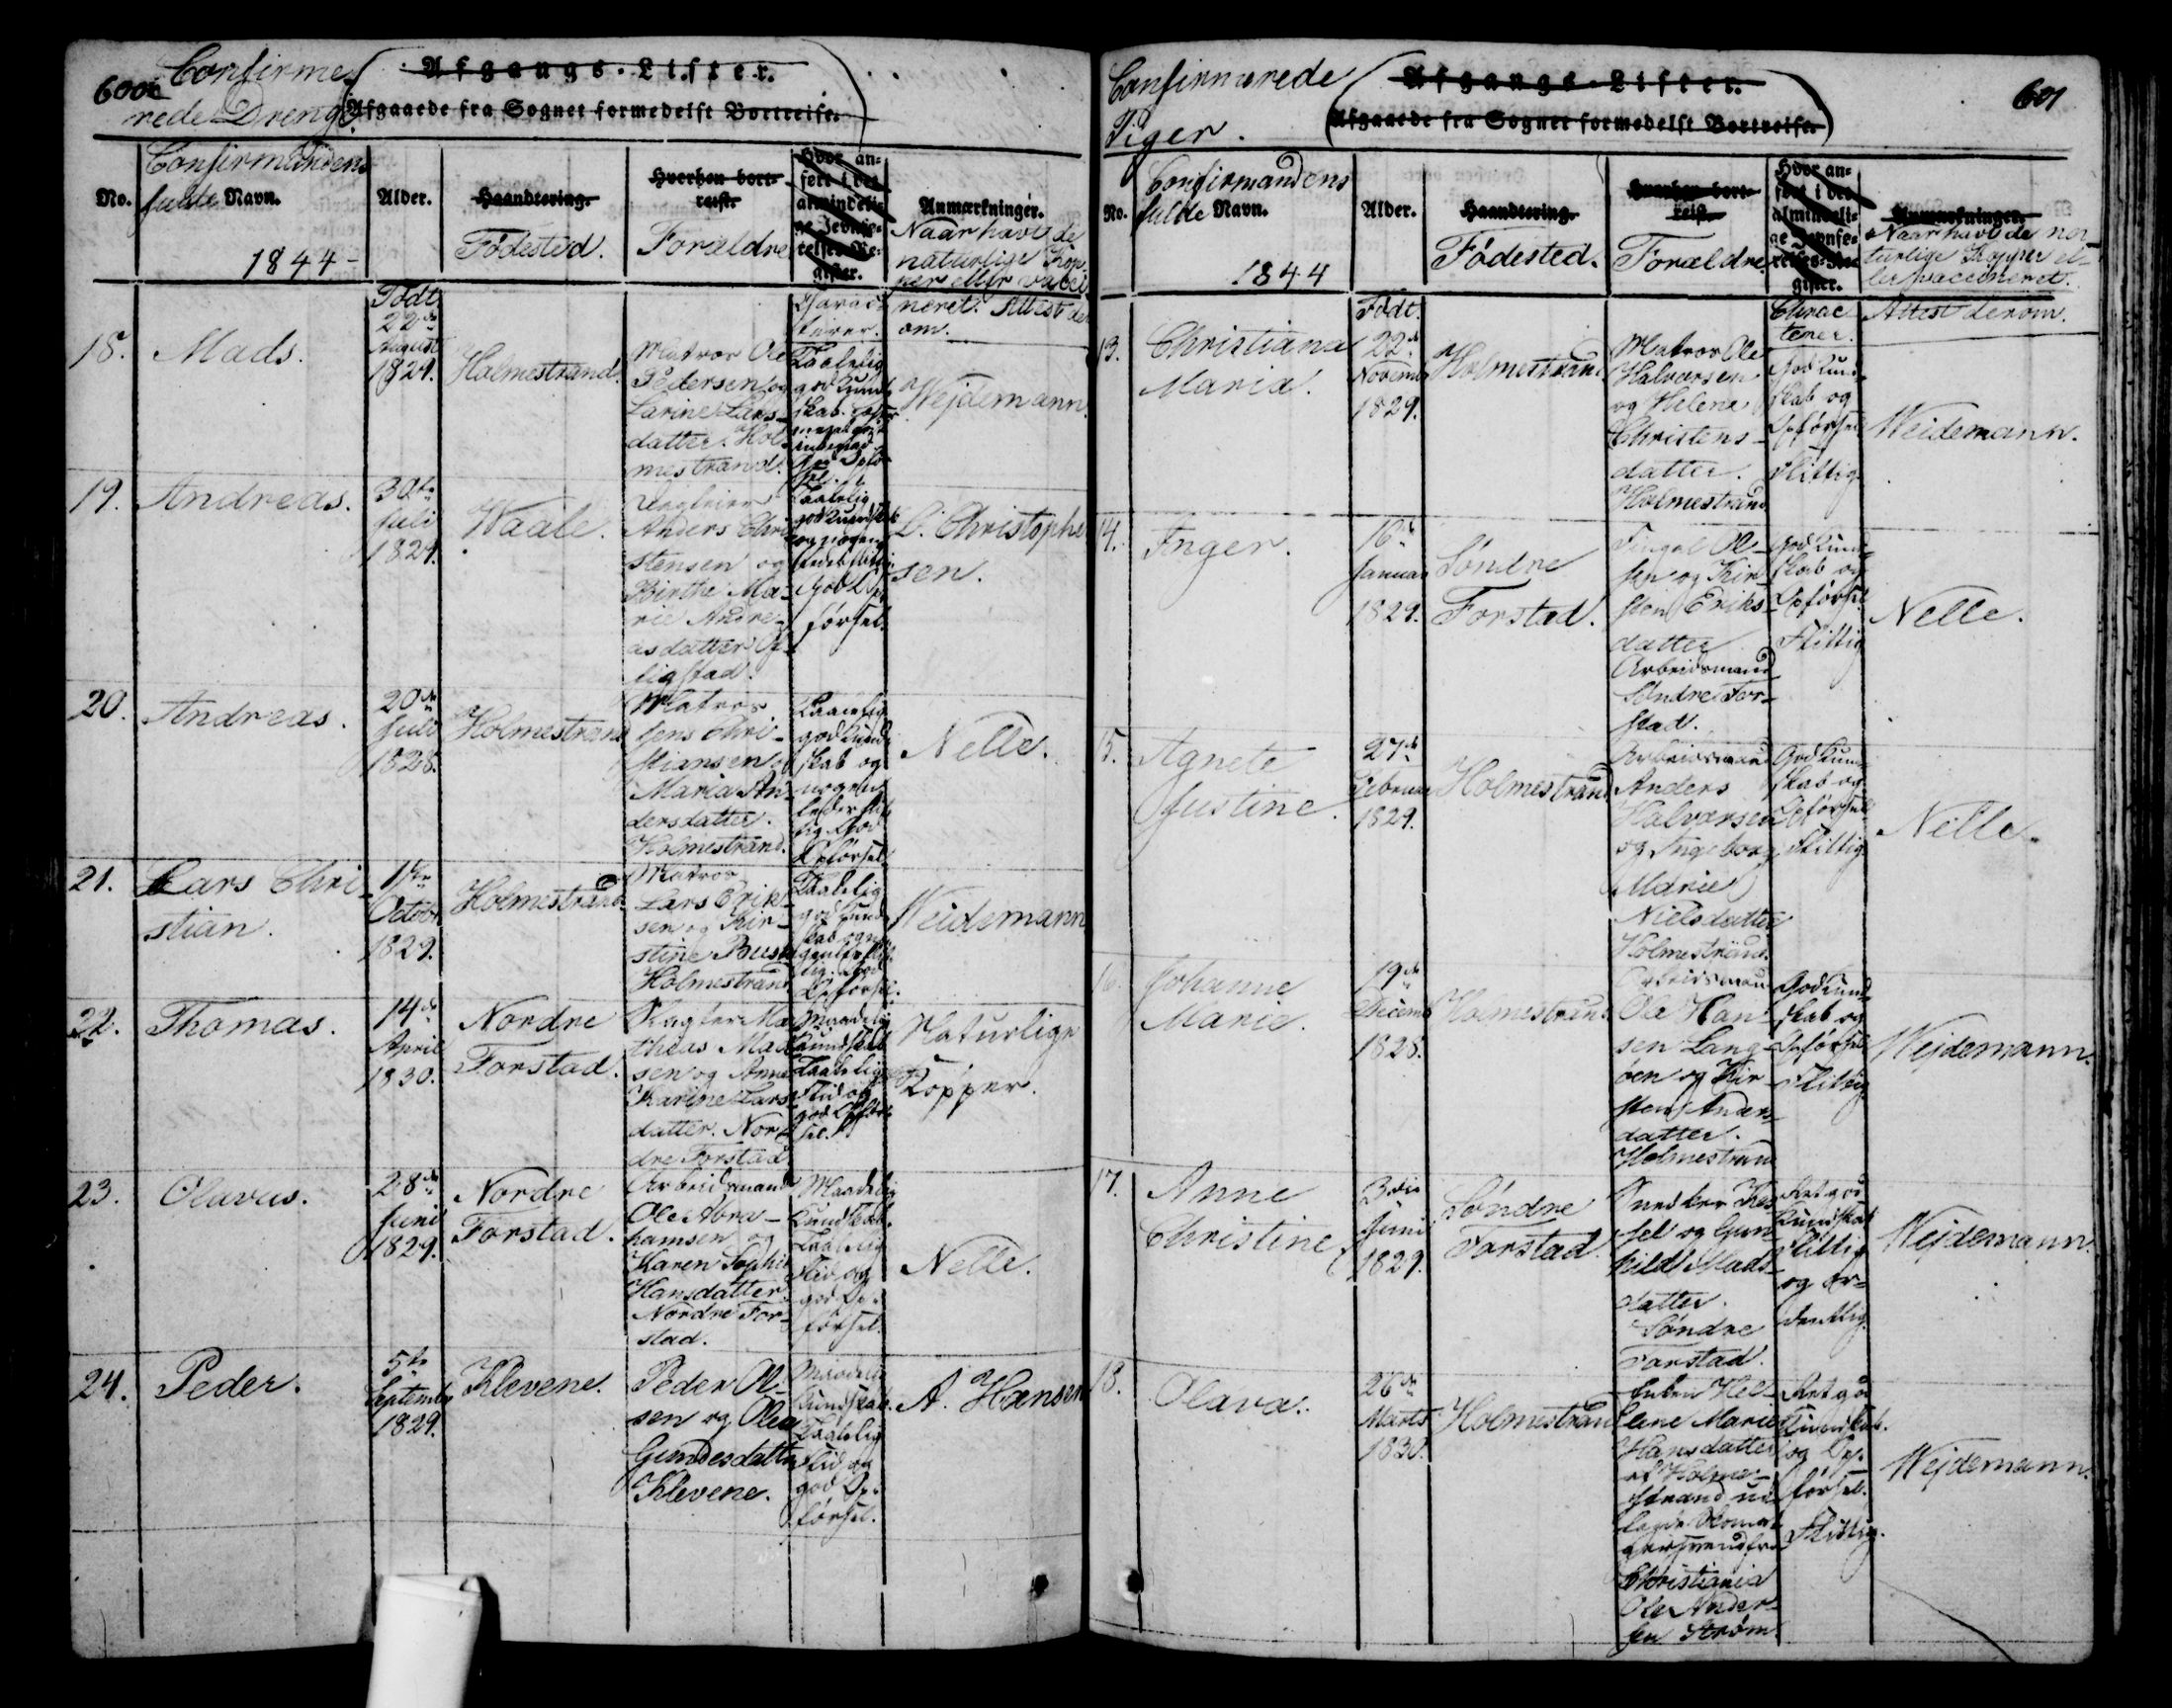 600
Confirme-
rede Drenge
Afgangs-Lister.
Afgaaede fra Sognet formedelst Bortreise.
No.
Confirmandens
fulde Navn.
1844
Alder.
Haandtering.
Fødested.
Hvorhen bort-
reist.
Forældre
Hvor an-
ført i det
almindeli-
ge Jevnfø-
relses-Re-
gister.
Anmærkninger.
Naar havt de
naturlige Kop-
per eller vacci
neret. Attest der
om.
Født
18.
Mads.
22de
August
1829.
Holmestrand.
Matros Ole
Pedersen og
Larine Lars-
datter. Hol-
mestrand.
Taalelig
god Kund-
skab.
Wejdemann.
19.
Andreas.
30te
Juli
1829.
Waale.
Anders Chri
stensen og
Birthe Ma-
rie Andre-
asdatter
Taalelig
god Kundskab
God Op-
førsel.
L. Christophe
sen.
20.
Andreas.
20de
Juli
1828.
Holmestrand
Matros
Jens Chri-
stiansen og
Maria An-
dersdatter.
Holmestrand.
Taalelig
god Kund-
skab og
nogen-
ledes flit-
tig. God
Opførsel.
Nelle.
21.
Lars Chri-
stian.
1ste
Octobr
1829.
Holmestrand
Matros
Lars Erik-
sen og Kir-
stine Buse
Holmestrand
Taalelig
god Kund-
skab og
tig. God
Opførsel.
Weidemann
22.
Thomas.
14de
April
1830.
Nordre
Forstad.
Slagter Ma
thias Mad
sen og Anne
Karine Lars
datter. Nor-
dre Forstad
Maadelig
Kundskab
Taalelig
Flid og
god Opfør-
sel.
Naturlige
Kopper.
23.
Olavus.
28de
Juni
1829.
Nordre
Forstad.
Arbeidsmand
Ole Abra-
hamsen og
Karen Sophie
Hansdatter.
Nordre For-
stad.
Maadelig
Kundskab.
Taalelig
Flid og
god Op-
førsel.
Nelle.
24.
Peder.
5te
Septembr
1829.
Klevene.
Peder Ol-
sen og Olea
Gundesdatter
Klevene.
Maadelig
Kundskab.
Taalelig
Flid og
god Op-
førsel.
A. Hansen
Confirmerede
Piger.
Afgangs-Lister.
Afgaaede fra Sognet formedelst Bortreise.
601
No.
Confirmandens
fulde Navn.
1844
Alder.
Haandtering.
Fødested.
Hvorhen bort-
reist.
Forældre
Hvor an-
ført i det
almindeli-
ge Jevnfø-
relses-Re-
gister.
Anmærkninger.
Naar havt de na-
turlige Kopper el-
ler vaccineret.
Født.
Charac
terer.
Attest derom.
13.
Christiana
Maria.
22de
November
1829.
Holmestrand
Matros Ole
Halvorsen
og Helene
Christens-
datter.
Holmestrand
God Kund-
skab og
Opførsel
Flittig.
Weidemann.
14.
Inger.
16de
Januar
1829.
Søndre
Forstad.
Fingal Ol-
sen og Kir-
sten Eriks-
datter
Arbeidsmand
Søndre For-
stad.
God Kund-
skab og
Opførsel
Flittig
Nelle.
15.
Agnete
Justine.
27de
Februar
1829.
Holmestrand
Arbeidsmand
Anders
Halvorsen
og Ingeborg
Marie
Nielsdatter
Holmestrand.
God Kund-
skab og
Opførsel
Flittig.
Nelle.
16.
Johanne
Marie.
19de
Decemb
1828.
Holmestrand.
Arbeidsmand
Ole Han-
sen Lang-
øen og Kir-
sten Anders-
datter.
Holmestrand
God Kund-
skab og
Opførsel
Flittig
Wejdemann.
17.
Anne
Christine
3die
Juni
1829.
Søndre
Forstad.
Snedker
og Gun-
hild Mads-
datter.
Søndre
Forstad.
Ret god
Kundskab
Flittig
og or-
dentlig.
Wejdemann.
18.
Olava.
26de
Marts
1830.
Holmestrand
Enken Hel-
lene Marie
Hansdatter
af Holme-
strand
Christiania
Ole Ander-
sen Strøm.
Ret god
Kundskab.
og Op-
førsel.
Flittig.
Wejdemann.